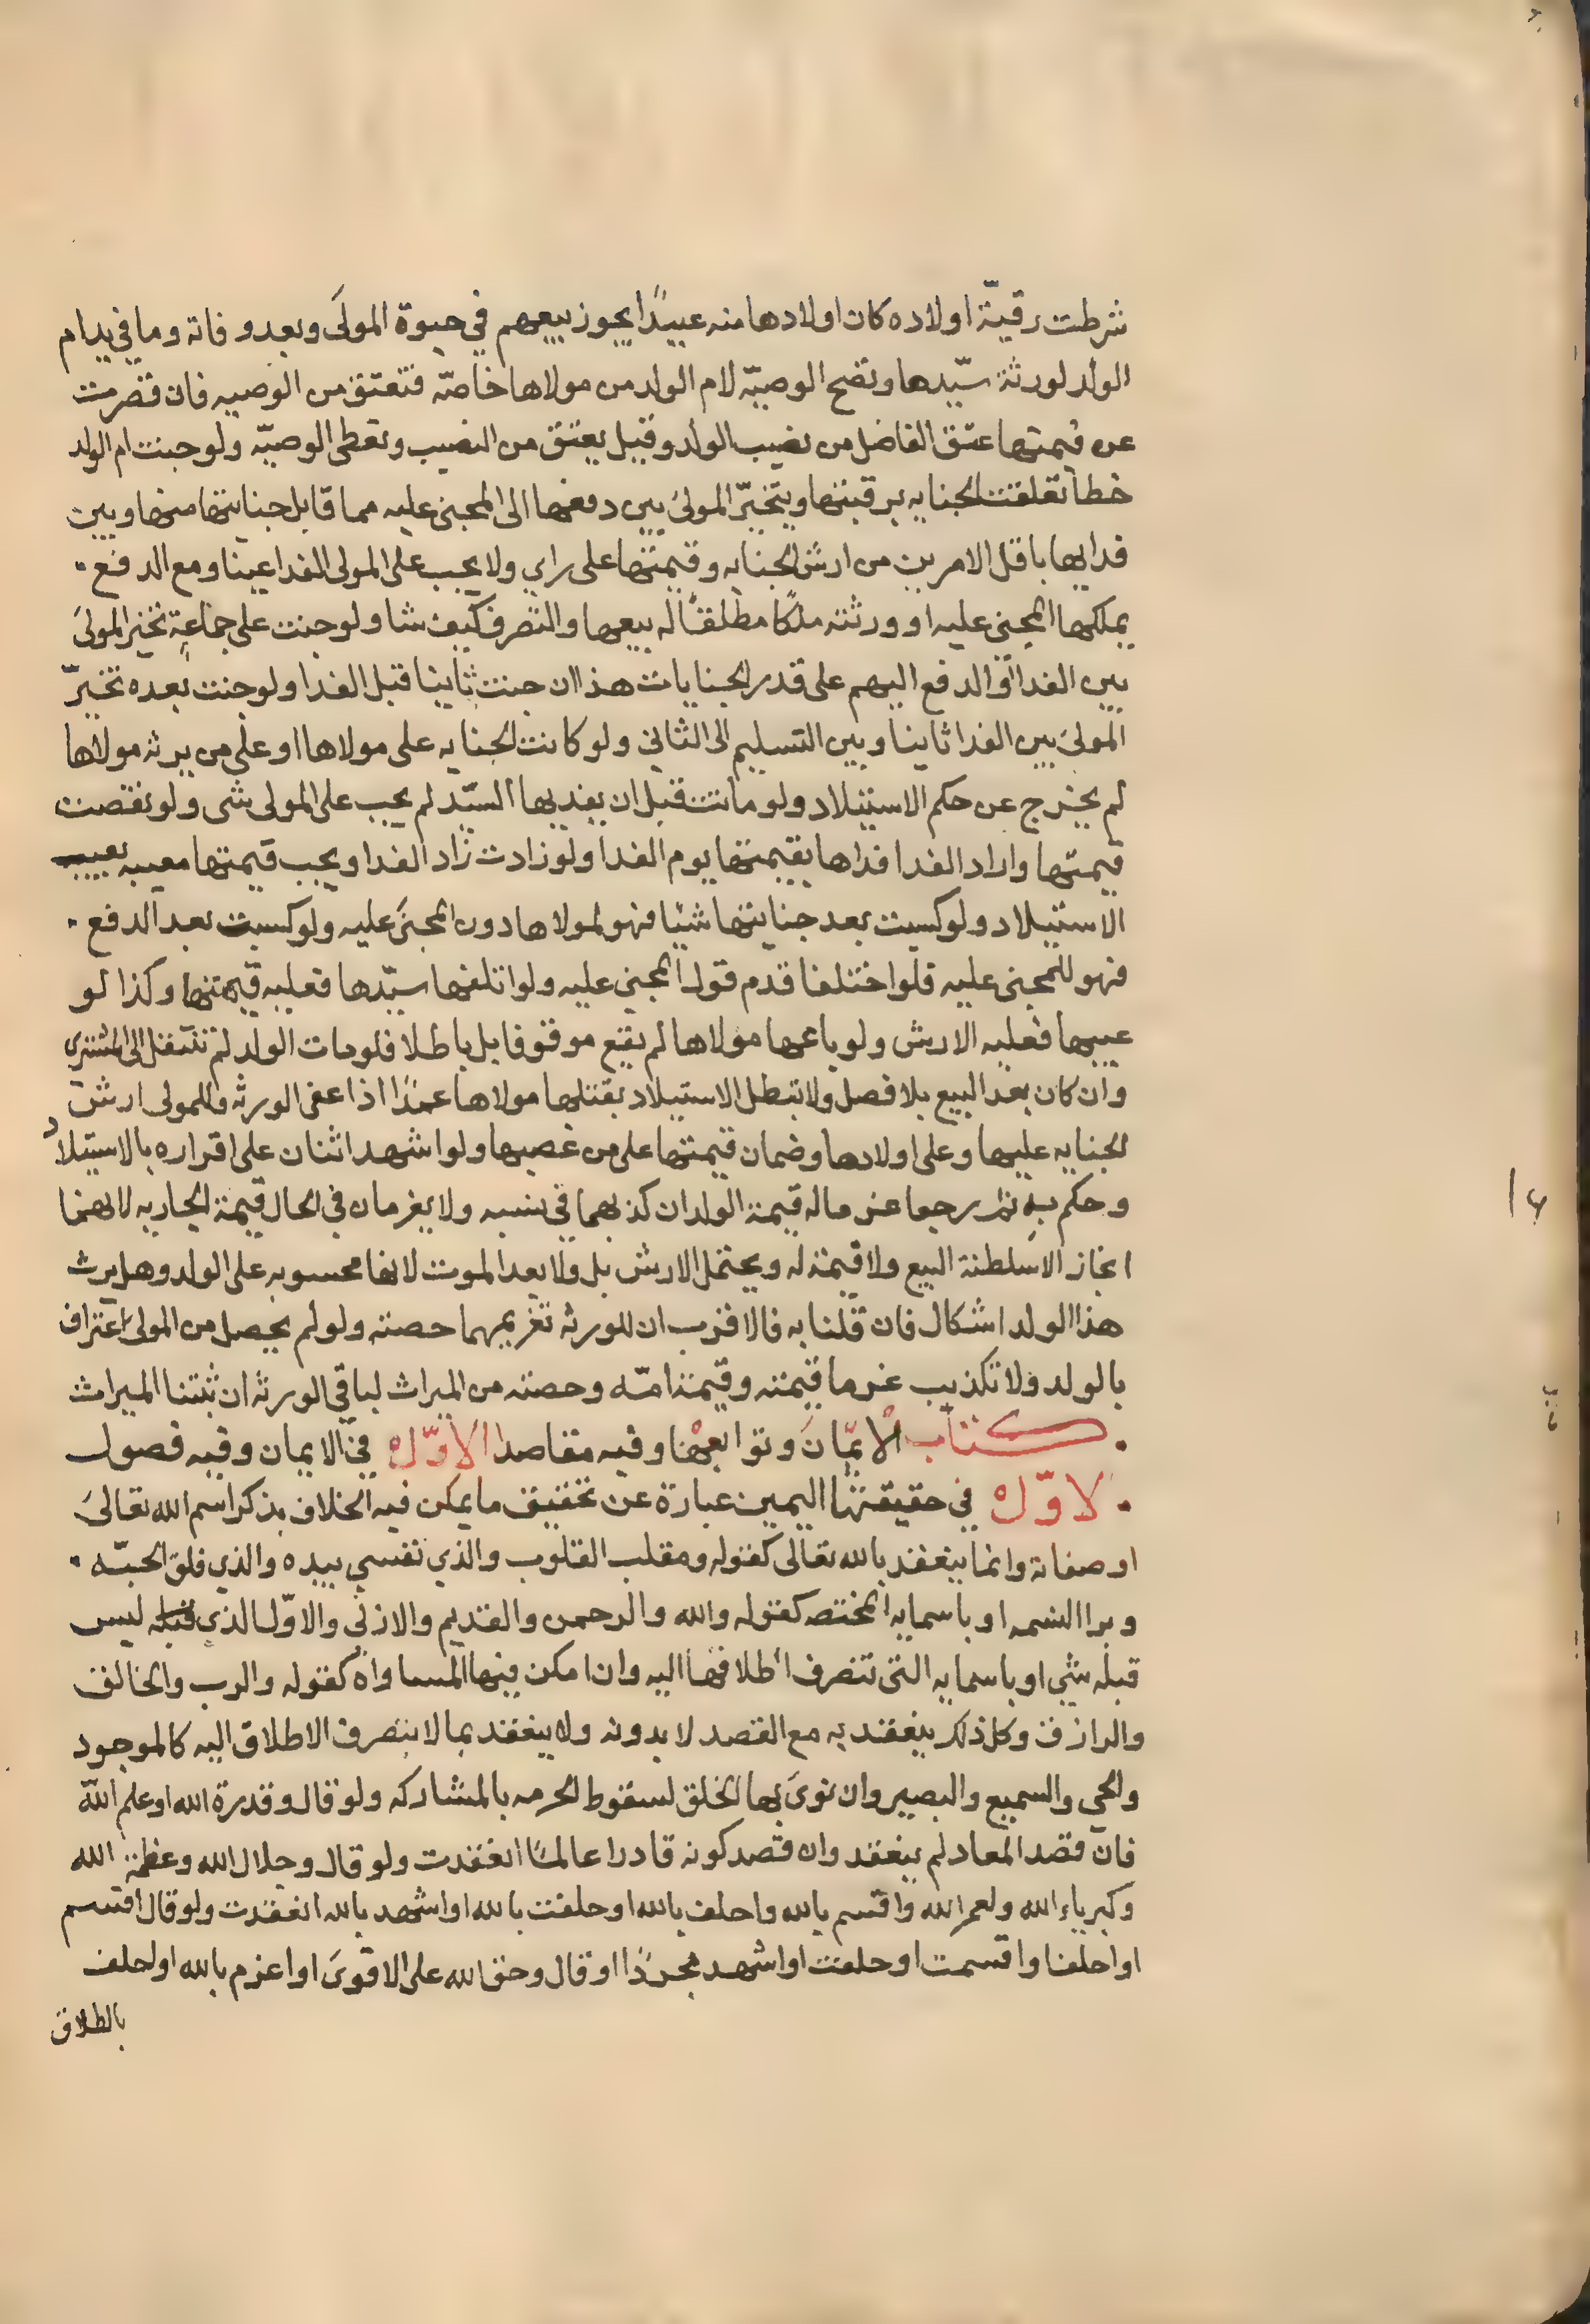 شرطت رقيّة اولاده كان اولادها منه عبيدًا يجوز بيعهم في حيوة المولى وبعد وفاته وما في يد ام
الولد لورثة سيّدها وتصح الوصيّه لام الولد من مولاها خاصّه فتعتق من الوصيه فان قصرت
عن قيمتها عتق الفاضل من نصيب الولد وقيل يعتق من النصيب وتعطى الوصيّه ولو جنت ام الولد
خطا تعلقت الجنايه برقبتها ويتخيّر المولى بين دفعها الى المجنى عليه مما قابل جنايتها منها وبين
فدايها باقل الامرين من ارش الجنايه وقيمتها على راي ولا يجب على المولى الفدا عينا ومع الدفع
يملكها المجني عليه او ورثته ملكًا مطلقًا له بيعها والتصرف كيف شا ولو جنت على جماعةٍ تخير المولى
بين الفدا او الدفع اليهم على قدر الجنايات هذا ان جنت ثانيا قبل الفدا ولو جنت بعده تخيّر
المولى بين الفدا ثانيا وبين التسليم الى الثاني ولو كانت الجنايه على مولاها او على من يرثه مولاها
لم يخرج عن حكم الاستيلاد ولو ماتت قبل ان يفديها السيّد لم يجب على المولى شى ولو نقصت
قيمتها واراد الفدا فداها بقيمتها يوم الفدا ولو زادت زاد الفدا ويجب قيمتها معيبه بعيب
الاستيلاد ولو كسبت بعد جنايتها شيئا فهو لمولاها دون المجنى عليه ولو كسبت بعد الدفع
فهو للمجنى عليه فلو اختلفا قدم قول المجني عليه ولو اتلفها سيّدها فعليه قيمتها وكذا لو
عيبها فعليه الارش ولو باعها مولاها لم يقع موقوفا بل باطلا فلو مات الولد لم تنتقل الى المشترى
وان كان بعد البيع بلا فصل ولا تبطل الاستيلاد بقتلها مولاها عمدًا اذا عفى الورثه وللمولى ارش
الجنايه عليها وعلى اولادها وضمان قيمتها على من غصبها ولو اشهد اثنان على اقراره بالاستيلاد
وحكم به ثم رجعا غرما له قيمة الولد ان كذبهما في نسبه ولا يغرمان في الحال قيمة الجاريه لانهما
انما زالا سلطنة البيع ولا قيمة له ويحتمل الارش بل ولا بعد الموت لانها محسوبه على الولد وهل يرث
هذا الولد اشكال فان قلنا به فالاقرب ان للورثه تغريمهما حصته ولو لم يحصل من المولى اعتراف
بالولد ولا تكذيب غرما قيمته وقيمة امّه وحصته من الميراث لباقي الورثه ان ثبتنا الميراث
كتاب الايمان وتوابعها وفيه مقاصد الاوّل في الايمان وفيه فصول
الاوّل في حقيقتها اليمين عبارة عن تحقيق ما يمكن فيه الخلاف بذكر اسم الله تعالى
او صفاته وانما ينعقد بالله تعالى كقوله ومقلب القلوب والذي نفسي بيده والذي فلق الحبّه
وبرا النسمه او باسمايه المختصه كقوله والله والرحمن والقديم والازلي والاوّل الذي ليس
قبله شي او باسمايه التي تنصرف اطلاقها اليه وان امكن فيها المساواة كقوله والرب والخالق
والرازق وكل ذلك ينعقد به مع القصد لا بدونه ولا ينعقد بما لا ينصرف الاطلاق اليه كالموجود
والحي والسميع والبصير وان نوى بها الخلق لسقوط الحرمه بالمشاركه ولو قال وقدرة الله او علم الله
فان قصد المعاد لم ينعقد وان قصد كونه قادرا عالمًا انعقدت ولو قال وجلال الله وعظمة الله
وكبرياء الله ولعمر الله واقسم بالله واحلف بالله او حلفت بالله او اشهد بالله انعقدت ولو قال اقسم
او احلف او اقسمت او حلفت او اشهد مجردًا او قال وحق الله على الاقوى او اعزم بالله او لحلف
بالطلاق
١٦